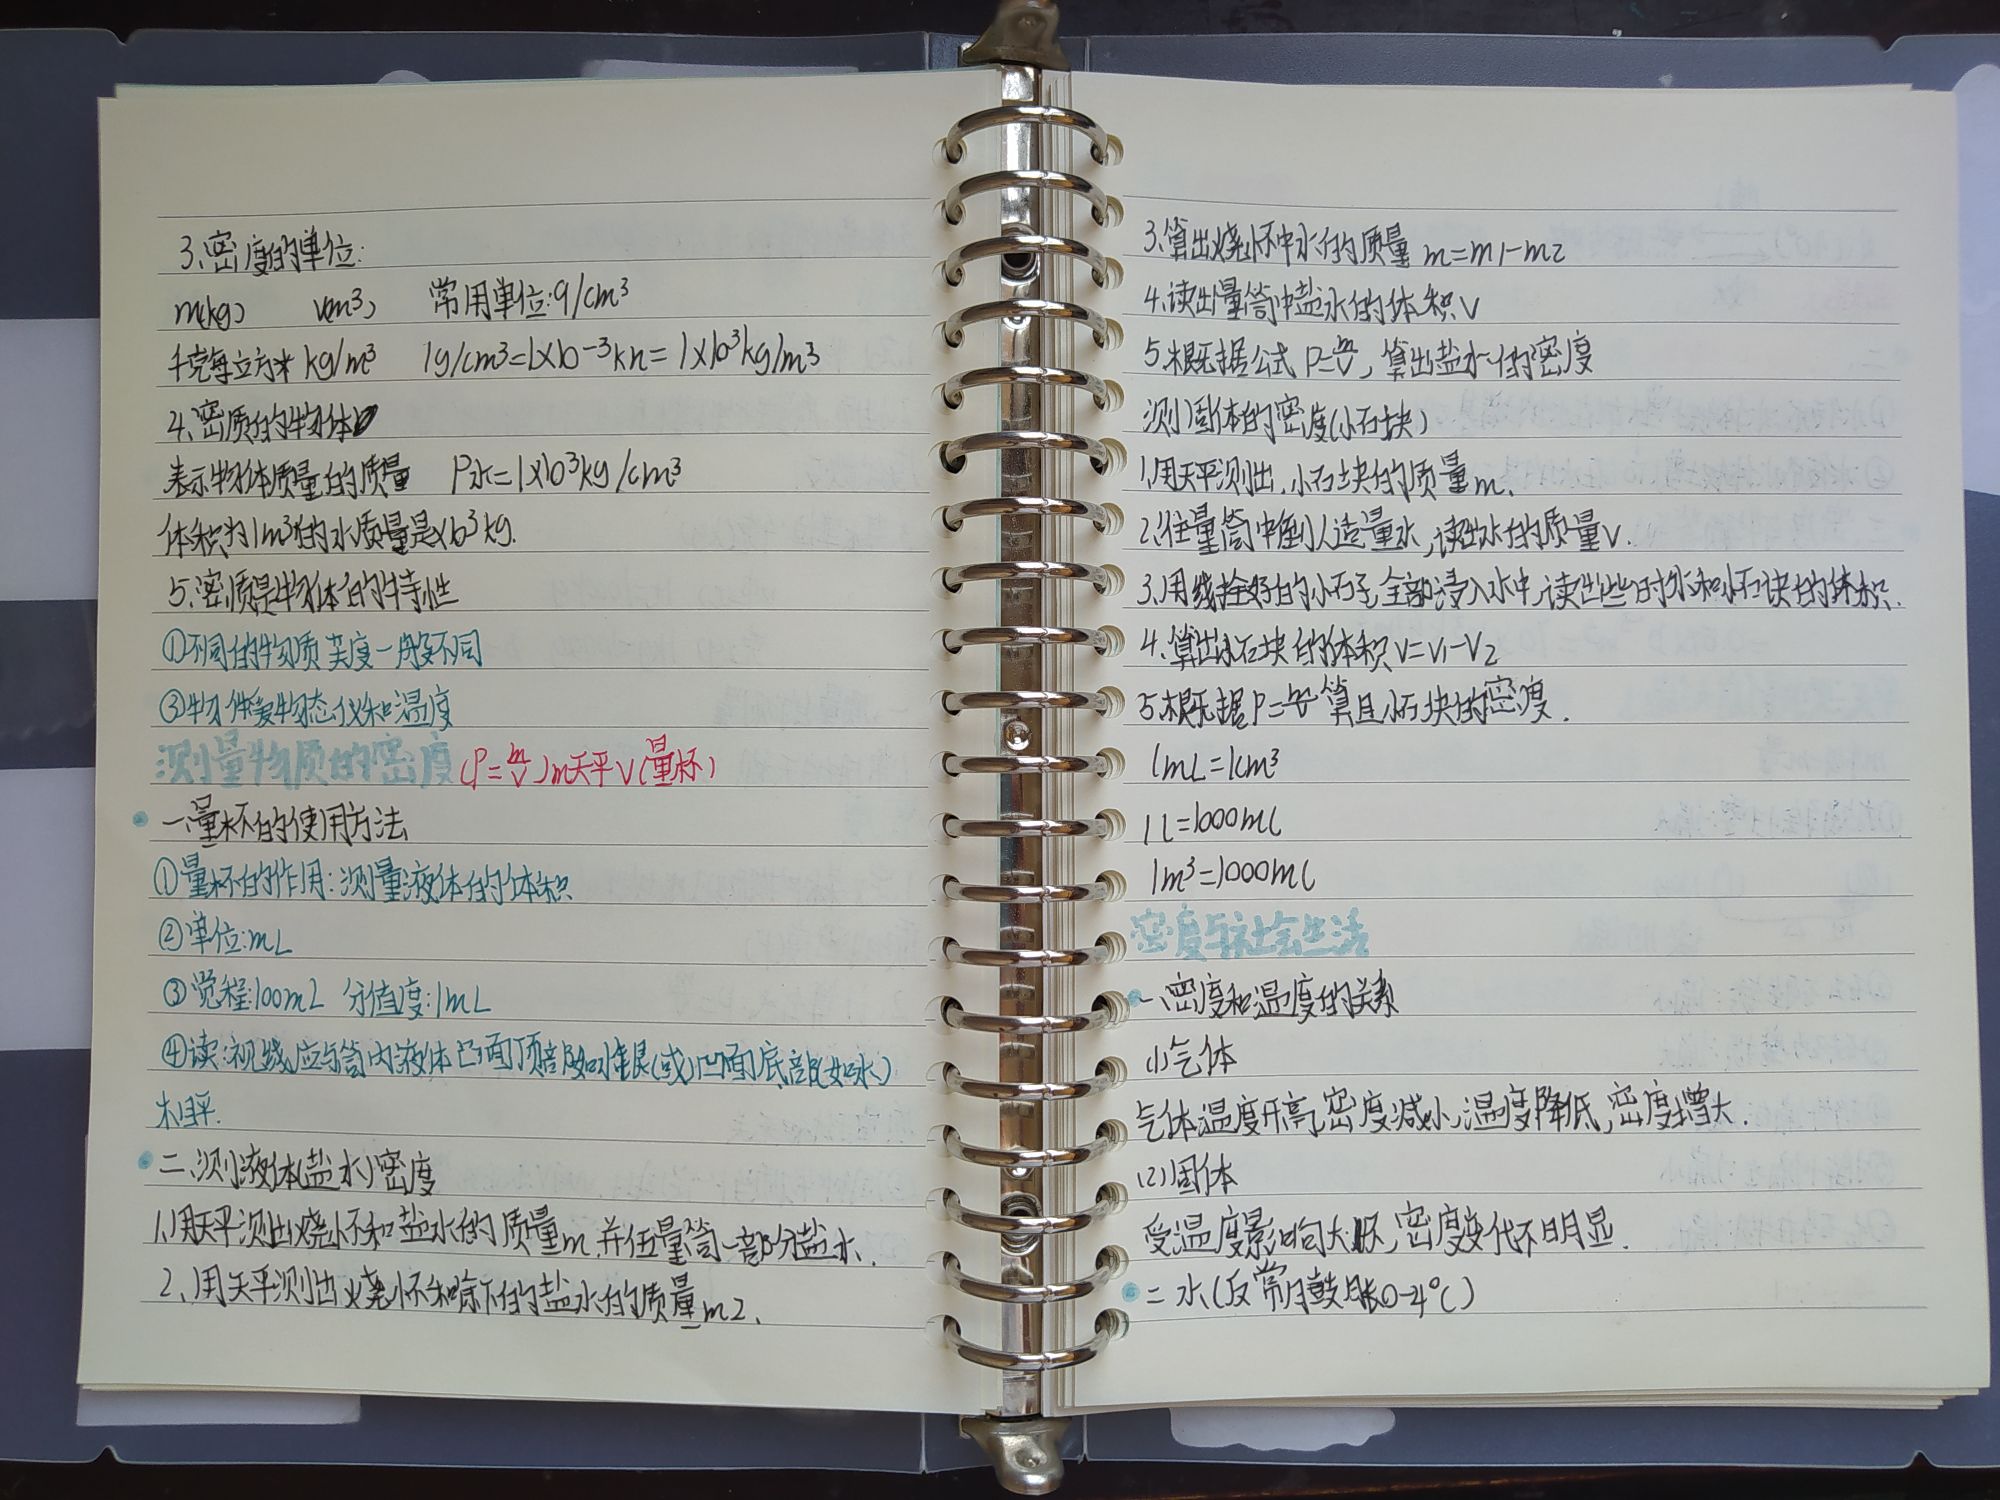 3、密度的单位:
m(kg) v(m³) 常用单位:g/cm³
千克每立方米 kg/m³ 1g/cm³=1×10-³kn=1×10³kg/m³
4、密质的物体
表示物体质量的质量 ρ水=1×10³kg/cm³
体积为1m³的水质量是×10³kg.
5、密质是物体的特性
①不同的物质 度一般不同
③物 物态 和温度
测量物质的密度(ρ=m/v)m天平 V(量杯)
一、量杯的使用方法
①量杯的作用:测量液体的体积
②单位:mL
③觉程:100mL 分值度:1mL
④读:视线应与筒内液体凸面顶部(如水银)(或)凹面底部(如水)
相平.
二、测液体(盐水)密度
1、用天平测出烧杯和盐水的质量m,并 量筒一部分盐水.
2、用天平测出烧杯和 下的盐水的质量m2、
3、算出烧杯中水的质量 m=m1-m2
4、读出量筒中盐水的体积V
5、根据公式ρ=m/v,算出盐水的密度
测固体的密度(小石块)
1、用天平测出,小石块的质量m、
2、往量筒中倒入适量水,读出水的质量v.
3、用线拴好的小石子,全部浸入水中,读出 时水和小石 的体积.
4、算出小石块的体积v=v1-v2
5、根据ρ=m/v算 小石块的密度.
1mL=1cm³
1L=1000mL
1m³=1000mL
密度与社会生活
一、密度和温度的关系
(1)气体
气体温度升高,密度减小,温度降低,密度增大.
(2)固体
受温度影响 ,密度变化不明显.
二 水(反常膨胀0-4℃)